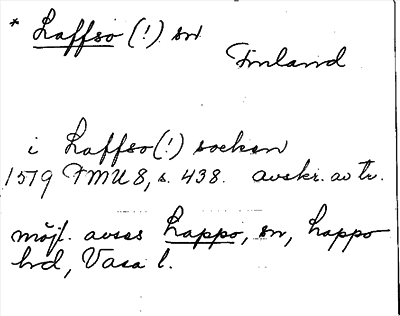 * Laffso (!) sn
Finland
i Laffso (!) socken
1579 FMU 8, s. 438. avskr. av tr.
möjl. avses Lappo, sn, Lappo
hd, Vasa l.